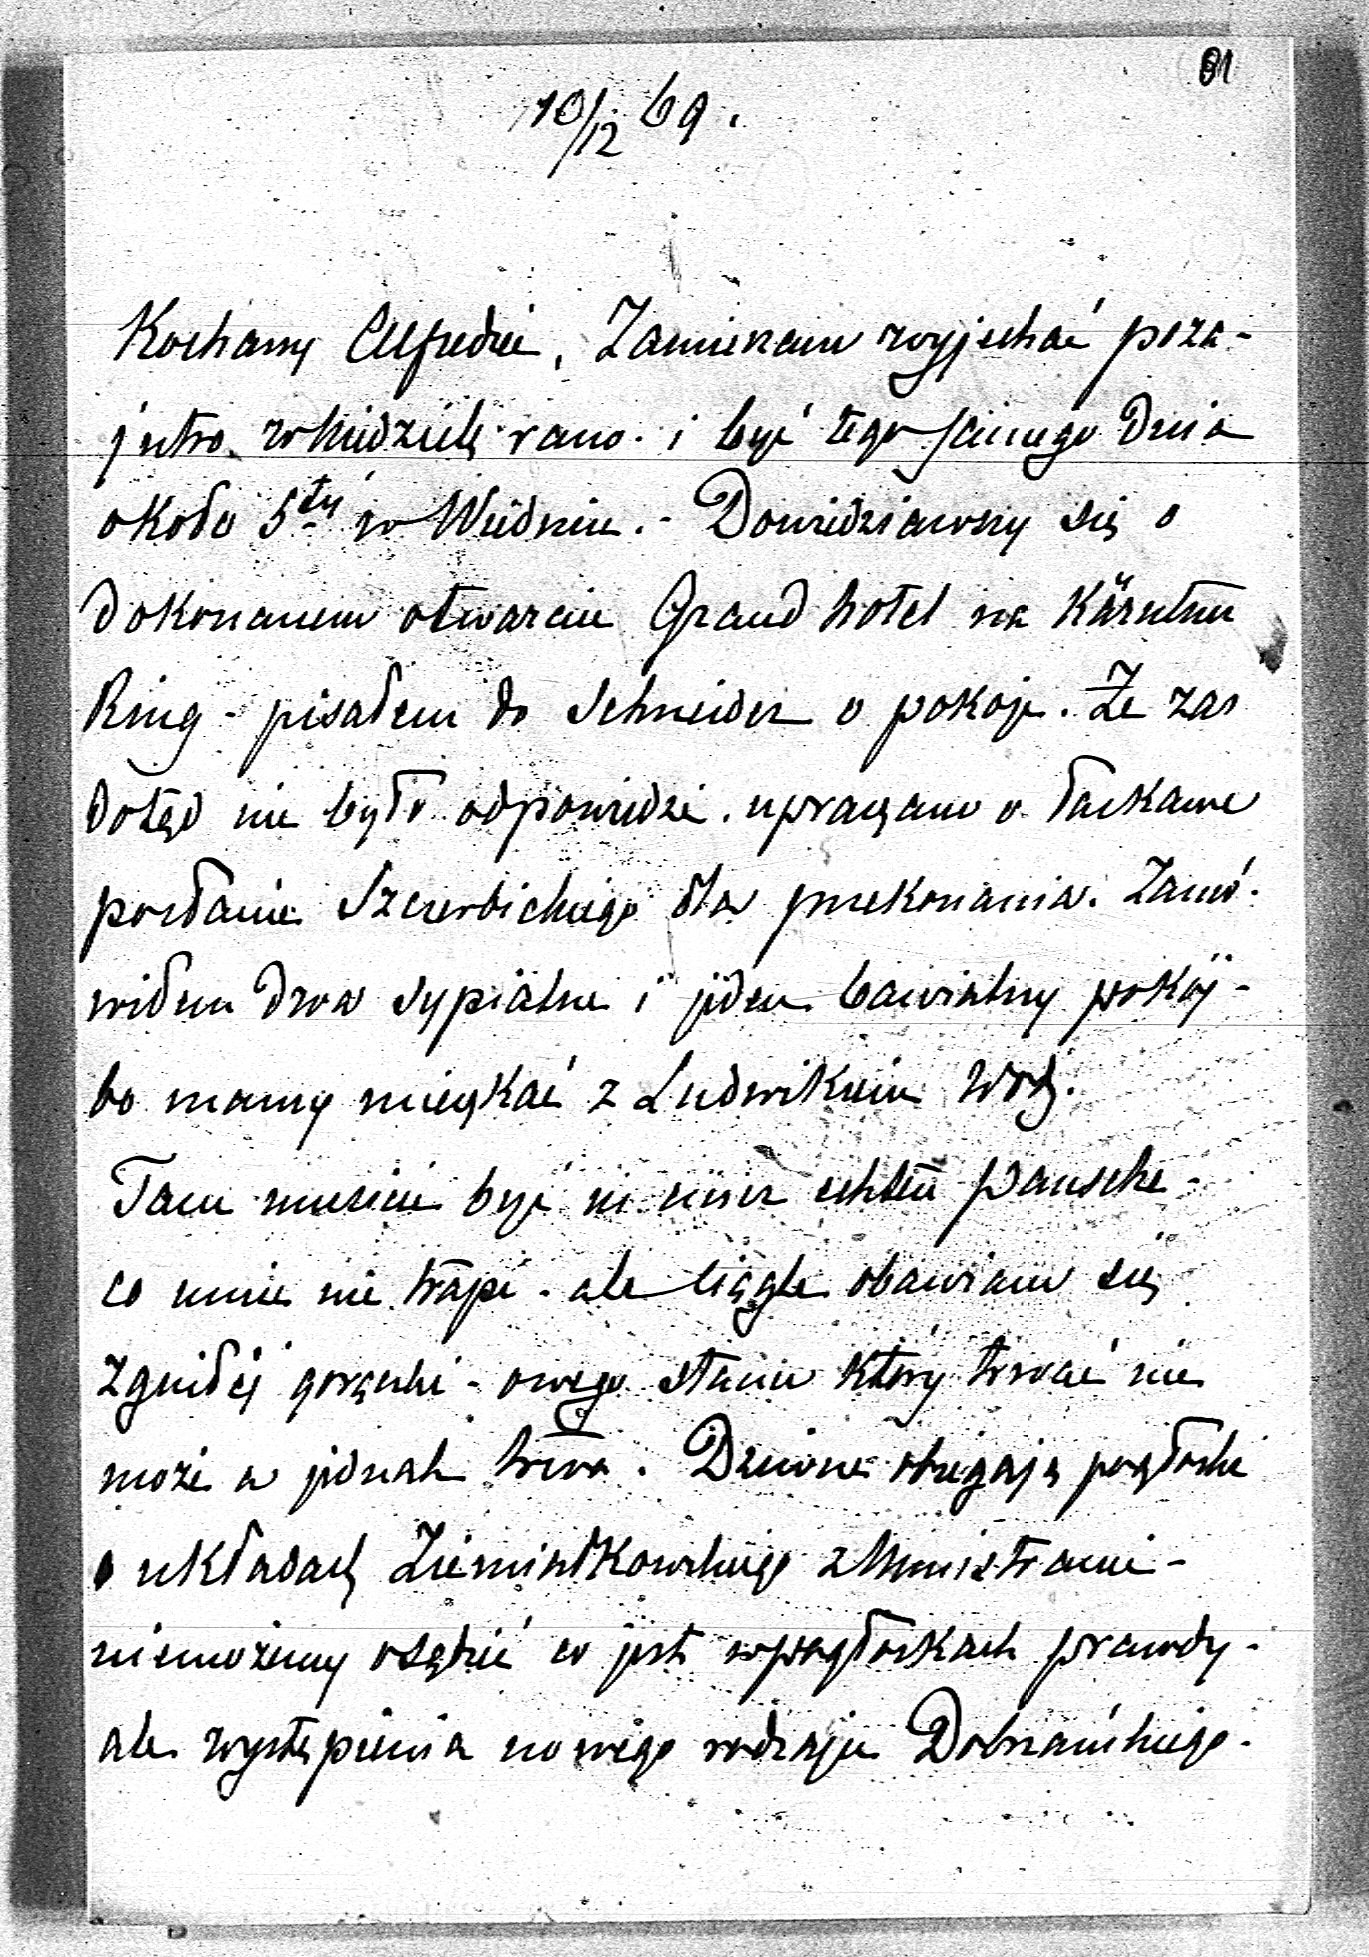 81
10/12 69.
Kochany Alfredzie, Zamierzam wyjechać poza-
jutro w Niedzielę rano i być tego samego dnia
około 5tej w Wiedniu. - Dowiedziawszy się o
dokonanem otwarciu Grand hotel na Kärnthner
Ring - pisałem do Schneider o pokoje. Że zaś
dotąd nie było odpowiedzi. upraszam o łaskawe
posłanie Szczerbickiego dla przekonania. Zamó-
wiłem dwa sypialne i jeden bawialny pokój -
bo mamy mieszkać z Ludwikiem Wodz.
Tam musicie być in einer echten Pansche -
co mnie nie trapi - ale ciągle obawiam się
zgniłej gorączki - owego stanu który trwać nie
może a jednak trwa. Dziwne obiegają pogłoski
o układach Ziemiałkowskiego z Ministrami -
niemożemy osądzić co jest w pogłoskach prawdy -
ale wystąpienia nowego rodzaju Dobrzańskiego -